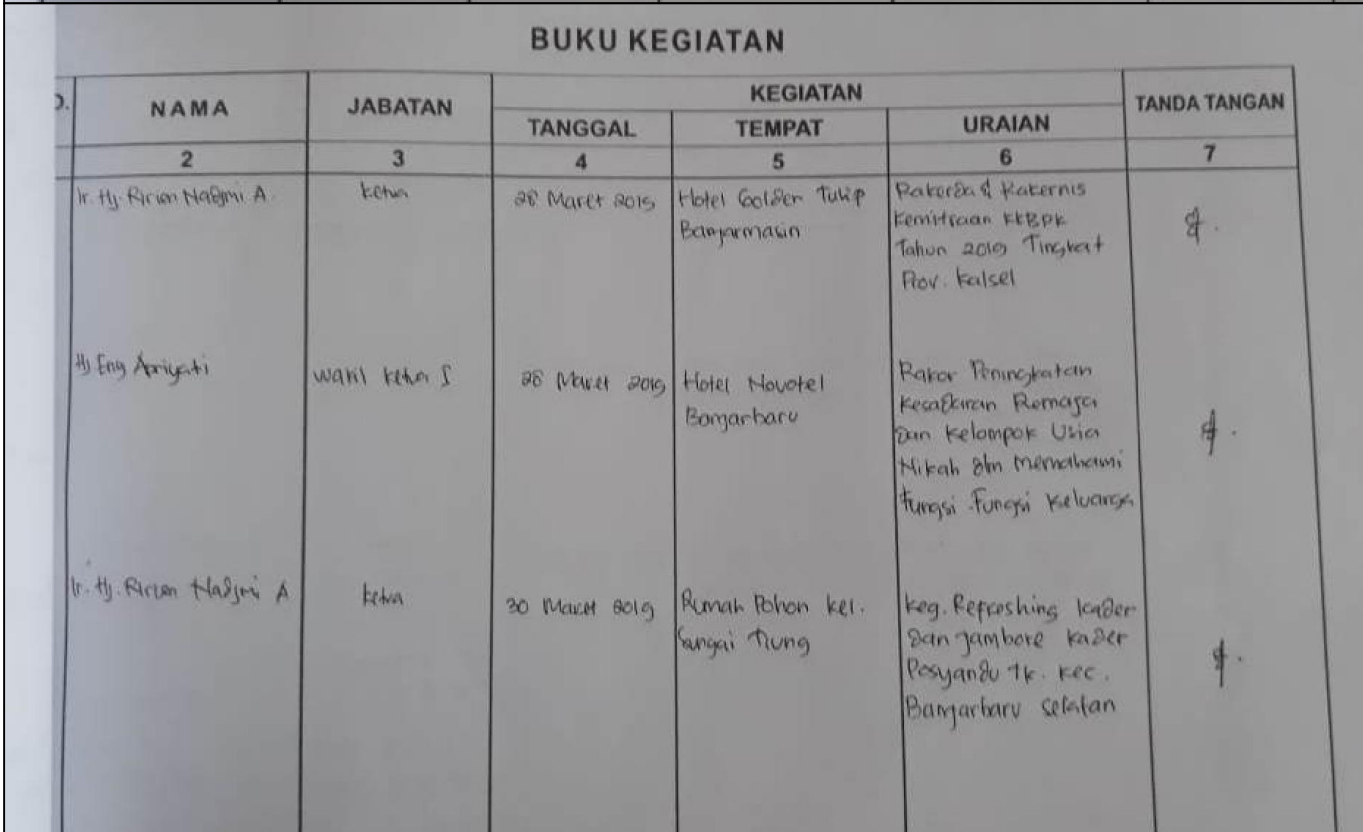 BUKU KEGIATAN
NAMA
JABATAN
KEGIATAN
TANDA TANGAN
TANGGAL
TEMPAT
URAIAN
2
3
4
5
6
7
Ir. Hj. Ririen Nadjmi A.
ketua
28 Maret 2019
Hotel Golden Tulip
Banjarmasin
Rakorda & Rakernis
Kemitraan KKBPK
Tahun 2019 Tingkat
Prov. Kalsel
Hj Eny Apriyati
Wakil Ketua I
28 Maret 2019
Hotel Novotel
Banjarbaru
Rakor Peningkatan
Kesadaran Remaja
dan Kelompok Usia
Nikah dlm Memahami
Fungsi-Fungsi Keluarga
Ir. Hj. Ririen Nadjmi A
ketua
30 Maret 2019
Rumah Pohon kel.
Sungai Tiung
Keg. Refreshing kader
dan jambore kader
Posyandu Tk. Kec.
Banjarbaru Selatan